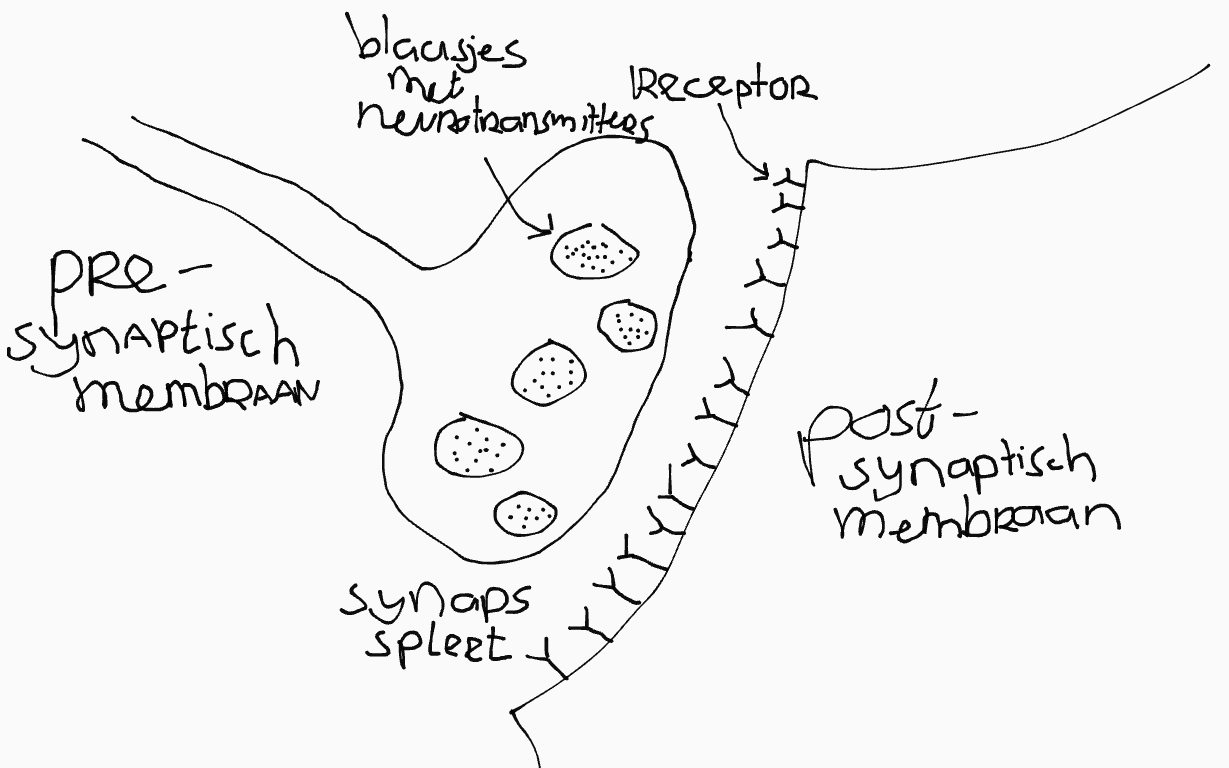 blaasjes
met
neurotransmitters
Receptor
pre-
synaptisch
membraan
post-
synaptisch
membraan
synaps
spleet